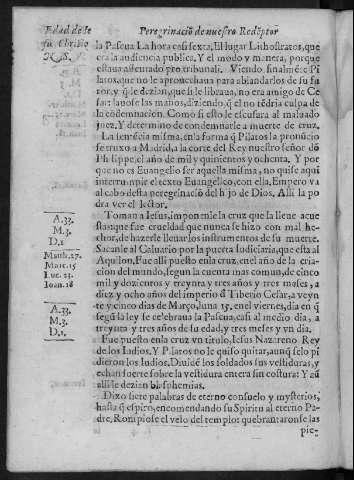 Edad de Ie
Peregrinació de nuestro Redẽptor
su Christo
N. S.
la Pascua La hora casi sexta, El lugar Lithostratos, que
era la audiencia publica, Y el modo y manera, porque
estaua assentado pro tribunali. Viendo finalmẽte Pi
latos, que no le aprouechaua para ablandarlos de su fu
ror, y q̃ le dezian, que si le libraua, no era amigo de Ce
sar: lauose las manos, diziendo, q̃ el no tẽdria culpa de
la codemnacion. Como si esto le escusara al maluado
juez, Y determino de condemnarle a muerte de cruz.
La sentẽcia misma, en la forma q̃ Pilatos la pronũcio
se truxo a Madrid, a la corte del Rey nuestro señor dõ
Phelippe, el año de mil y quinientos y ochenta, Y por
que no es Euangelio ser aquella misma, no quise aqui
interrumpir el texto Euangelico, con ella, Empero va
al cabo desta peregrinació del hijo de Dios. Alli la po
dra ver el lector.
A.33.
M.3.
D.1
Toman a Iesus, imponenle la cruz que la lleue acue
stas que fue crueldad que nunca se hizo con mal he-
chor, de hazerle lleuar los instrumentos de su muerte.
Matth.27.
Marc.15
Luc.23.
Ioan.18
Sacanle al Caluario por la puerta Iudiciaria, que esta al
Aquilon, Fue alli puesto en la cruz, en el año de la cria-
cion del mundo, segun la cuenta mas comun, de cinco
mil y dozientos y treynta y tres años y tres meses, a
diez y ocho años del imperio d Tiberio Cesar, a veyn-
A.33.
M.3.
D.1.
te y cinco dias de Março, luna 15. en el viernes, dia en q̃
segũ la ley se celebraua la Pascua, casi al medio dia, a
treynta y tres años de su edad, y tres meses y vn dia.
Fue puesto en la cruz vn titulo, Iesus Nazareno Rey
de los Iudios, Y Pilatos no le quiso quitar, aunq̃ selo pi
dieron los Iudios, Diuidẽ los soldados sus vestiduras, y
echan suerte sobre la vestidura entera sin costura: Y aũ
alli le dezian blasphemias.
Dixo siete palabras de eterno consuelo y mysterios,
hasta q̃ espiro, encomendando su Spiritu al eterno Pa-
dre, Rompiose el velo del templo: quebrantaronse las
pie-